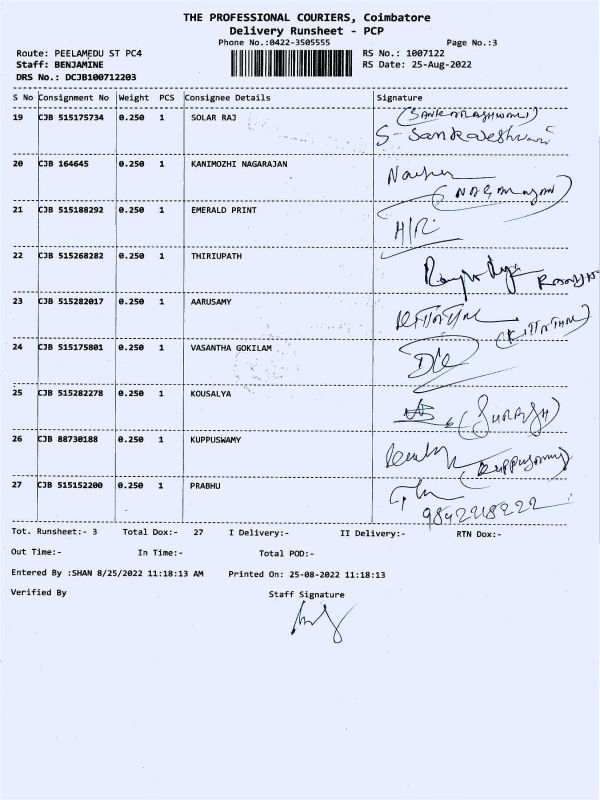 THE PROFESSIONAL COURIERS, Coimbatore
Delivery Runsheet - PCP
Phone No.:0422-3505555
Page No.:3
Route: PEELAMEDU ST PC4
RS No.: 1007122
Staff: BENJAMINE
RS Date: 25-Aug-2022
DRS No.: DCJB100712203
S No Consignment No Weight PCS Consignee Details Signature
19 CJB 515175734 0.250 1 SOLAR RAJ
S-Sankareshwari
20 CJB 164645 0.250 1 KANIMOZHI NAGARAJAN
(NAGARAJAN)
21 CJB 515188292 0.250 1 EMERALD PRINT
22 CJB 515268282 0.250 1 THIRIUPATH
23 CJB 515282017 0.250 1 AARUSAMY
24 CJB 515175801 0.250 1 VASANTHA GOKILAM
25 CJB 515282278 0.250 1 KOUSALYA
(SURESH)
26 CJB 88730188 0.250 1 KUPPUSWAMY
(Kuppusamy)
27 CJB 515152200 0.250 1 PRABHU
9842218222
Tot. Runsheet:- 3 Total Dox:- 27 I Delivery:- II Delivery:- RTN Dox:-
Out Time:- In Time:- Total POD:-
Entered By :SHAN 8/25/2022 11:18:13 AM Printed On: 25-08-2022 11:18:13
Verified By Staff Signature